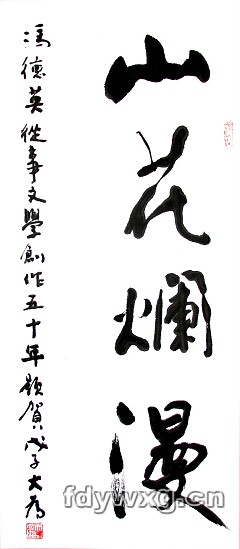 山花爛漫
馮德英從事文學創作五十年題賀戊子大為
fdywxg.cn